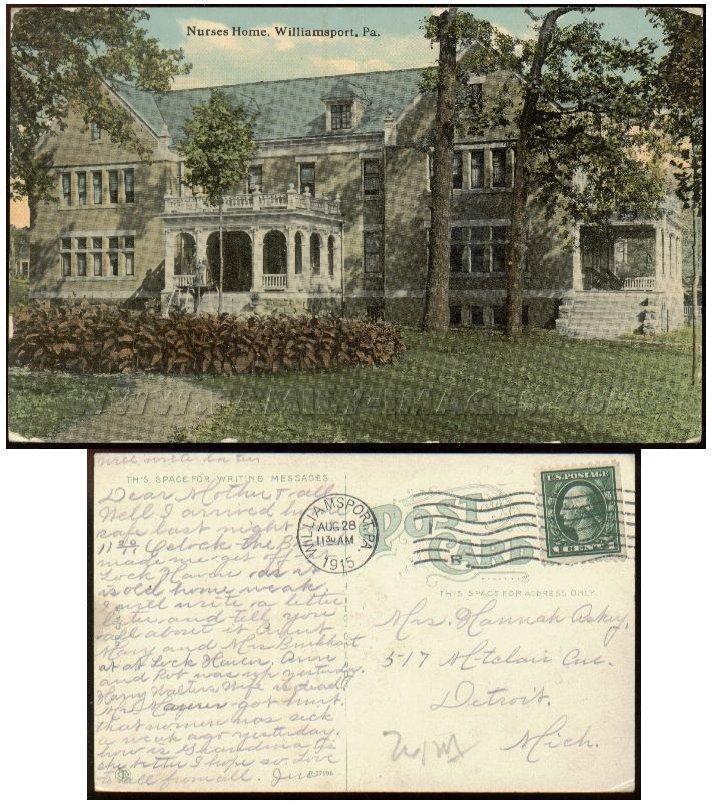 Nurses Home, Williamsport, Pa.
WWW.FAMILY-IMAGES.COM
will write later
THIS SPACE FOR WRITING MESSAGES
Dear Mother & all
Well I arrived
safe last night
11 30 O'clock the
made me get off at
Lock Haven as it
is old home weak,
I will write a letter
later and tell you
all about it. I met
Mary and Mrs Burkhart
at Lock Haven. Ann
and Rot was up yesturday.
Harry Walters Wife is dead.
Mrs got hurt.
that women was sick
a week ago yesturday.
how is Grandma Is
she better I hope so. Love
to all from all.
WILLIAMSPORT, PA.
AUG 28
11 30 AM
1915
POST
CARD
U.S. POSTAGE
1 CENT 1
THIS SPACE FOR ADDRESS ONLY.
Mrs. Hannah Askey,
517 Mt-clair Ave.
Detroit,
Mich.